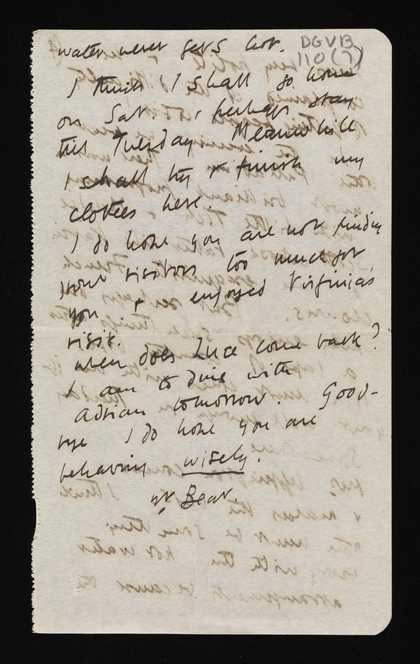 water never gets hot.
DGVB
110 (7)
I think I shall go home
on Sat & perhaps stay
till Tuesday. Meanwhile
I shall try & finish my
clothes here.
I do hope you are not finding
your visitors too much for
you & enjoyed Virginia's
visit.
When does Luce come back?
I am to dine with
Adrian tomorrow. Good-
bye I do hope you are
behaving wisely.
yr Bear.